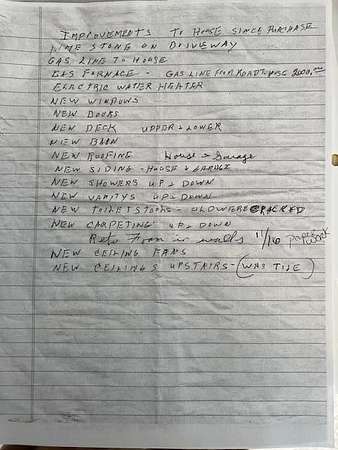 IMPROVEMENTS TO HOUSE SINCE PURCHASE
LIME STONE ON DRIVEWAY
GAS LINE TO HOUSE
GAS FURNACE - GAS LINE FROM ROAD TO HOUSE 2000.00
ELECTRIC WATER HEATER
NEW WINDOWS
NEW DOORS
NEW DECK UPPER & LOWER
NEW BARN
NEW ROOFING House & Garage
NEW SIDING - HOUSE & GARAGE
NEW SHOWERS UP & DOWN
NEW VANITYS UP & DOWN
NEW TOILETS - OLD WERE CRACKED
NEW CARPETING UP & DOWN
in walls 11/16 paper work
NEW CEILING FANS
NEW CEILINGS UPSTAIRS - (WAS TILE)